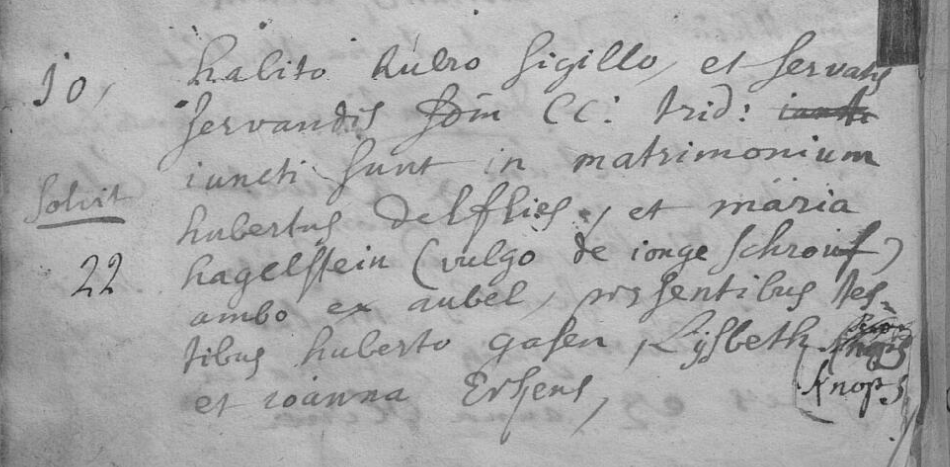 10, habito rubro sigillo, et servatis
servandis scdm CC: trid:
iuncti sunt in matrimonium
solvit hubertus delflies, et maria
22 hagelstein (vulgo de ionge schrouf)
ambo ex aubel, presentibus tes-
tibus huberto gasen, Lijsbeth
et ioanna Ersens, Knops